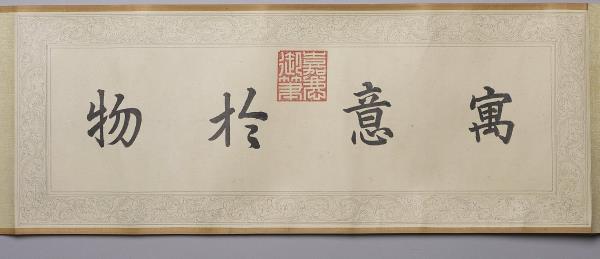 寓意於物
嘉慶御筆